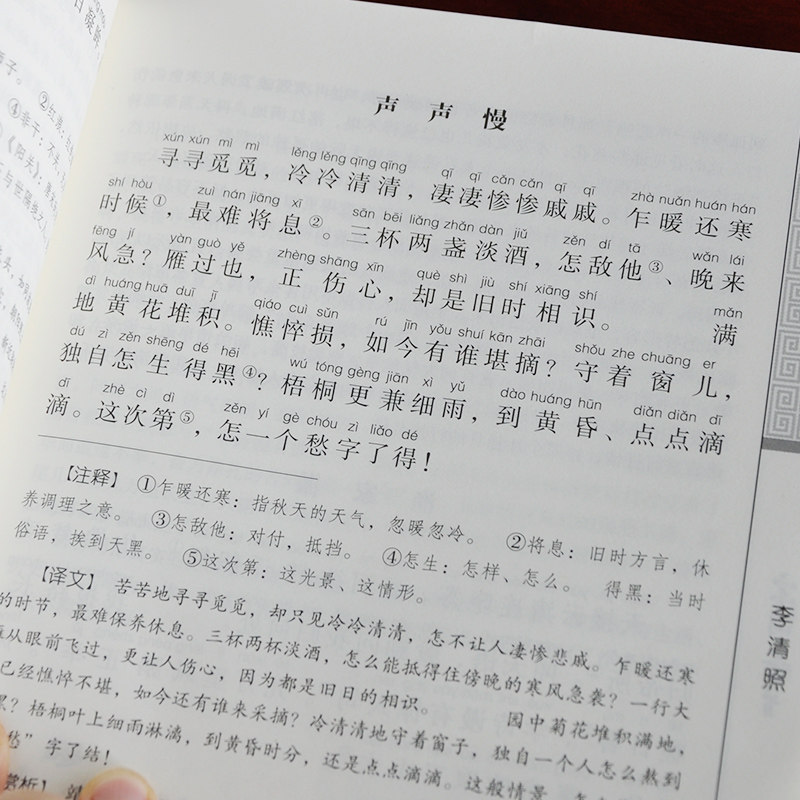 声声慢
xún xún mì mì lěng lěng qīng qīng qī qī cǎn cǎn qī qī zhà nuǎn huán hán
寻寻觅觅，冷冷清清，凄凄惨惨戚戚。乍暖还寒
shí hòu zuì nán jiāng xī sān bēi liǎng zhǎn dàn jiǔ zěn dí tā wǎn lái
时候①，最难将息②。三杯两盏淡酒，怎敌他③、晚来
fēng jí yàn guò yě zhèng shāng xīn què shì jiù shí xiāng shí mǎn
风急？雁过也，正伤心，却是旧时相识。 满
dì huáng huā duī jī qiáo cuì sǔn rú jīn yǒu shuí kān zhāi shǒu zhe chuāng er
地黄花堆积。憔悴损，如今有谁堪摘？守着窗儿，
dú zì zěn shēng dé hēi wú tóng gèng jiān xì yǔ dào huáng hūn diǎn diǎn dī
独自怎生得黑④？梧桐更兼细雨，到黄昏、点点滴
dī zhè cì dì zěn yí gè chóu zì liǎo dé
滴。这次第⑤，怎一个愁字了得！
【注释】 ①乍暖还寒：指秋天的天气，忽暖忽冷。 ②将息：旧时方言，休
养调理之意。 ③怎敌他：对付，抵挡。 ④怎生：怎样、怎么。 得黑：当时
俗语，挨到天黑。 ⑤这次第：这光景、这情形。
【译文】 苦苦地寻寻觅觅，却只见冷冷清清，怎不让人凄惨悲戚。乍暖还寒
的时节，最难保养休息。三杯两杯淡酒，怎么能抵得住傍晚的寒风急袭？一行大
从眼前飞过，更让人伤心，因为都是旧日的相识。 园中菊花堆积满地，
已经憔悴不堪，如今还有谁来采摘？冷清清地守着窗子，独自一个人怎么熬到
？梧桐叶上细雨淋漓，到黄昏时分，还是点点滴滴。这般情景，
”字了结！
赏析】
李清照
②红
④非干：不
《阳关》